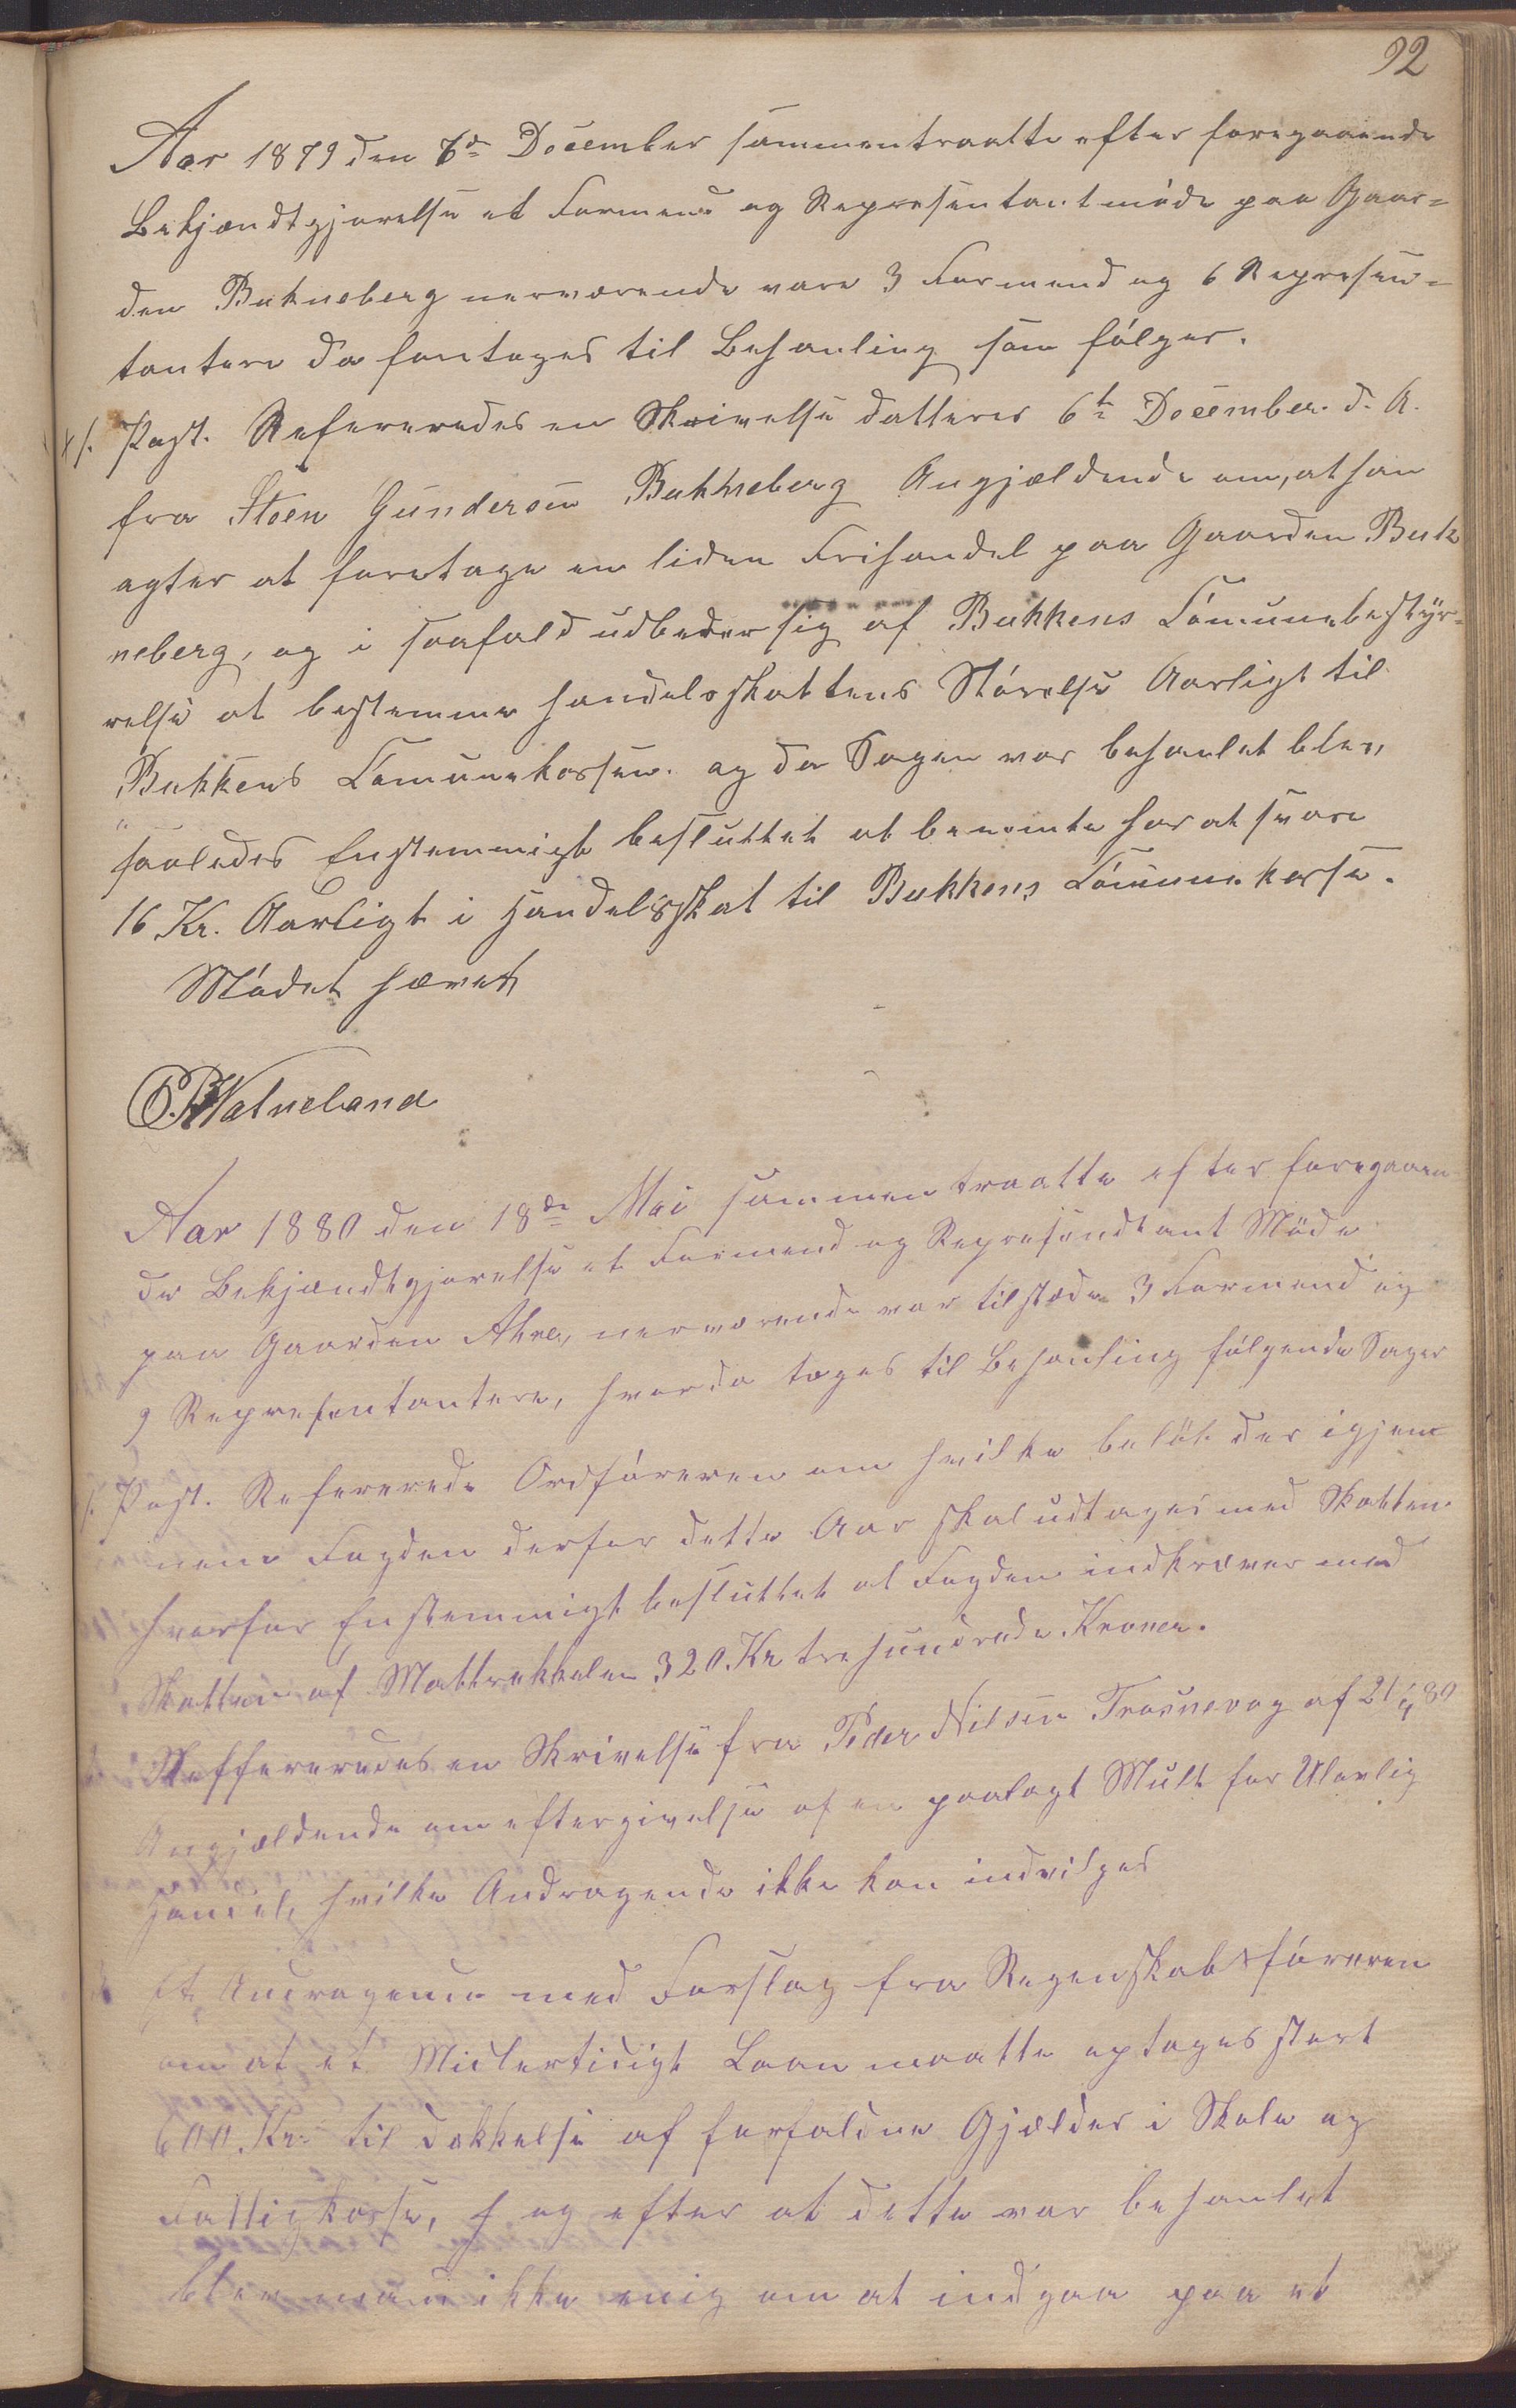 92
Aar 1879 den 6de December sammentraatte efter foregaaende
Bekjændtgjørelse et Formend og Representantmøde paa Gaar=
den Bukneberg nerværende vare 3 Formend og 6 Represen=
tantere da foretoges til Behanling som følger.
1/. Post. Refereredes en Skrivelse datteres 6te December d. A.
fra Steen Gundersen Bukneberg Angjældende om, at han
agter at foretage en liden Frihandel paa Gaarden Buk
neberg, og i saafald udbeder sig af Bukkens Comunebestyr=
relse at bestemme handelsskattens Størelse Aarligt til
Bukkens Comunekassen. og da Sagen var behanlet blev,
saaledes Enstemmigt besluttet at benemte har at svare
16 Kr. Aarligt i Handelsskat til Bukkens Comunekasse.
Mødet hævet
O. B. Vatneland
Aar 1880 den 18de Mai sammentraatte efter foregaaen
de Bekjændtgjørelse et Formend og Represendtant Møde
paa Gaarden Ahre, nerværende var tilstæde 3 Formend og
9 Representantere, hvorda toges til Behanling følgende Sager
1. Post. Refererede Ordføreren om hvilke beløb der igjem
nem Fogden derfor dette Aar skal udtages med Skatten
hvorfor Enstemmigt besluttet at Fogden indkræver med
Skatten af Mattrekkelen 320 Kr trehundrede Kroner.
Reffereredes en Skrivelse fra Peder Nilsen Trosnevag af 21/4 80
Angjældende om eftergivelse af en paalagt Mult for Ulovlig
Handel, hvilke Andragende ikke kan indvilges
Et Andragende med Forslag fra Regenskabsføreren
om at et Midlertidigt Laan maatte optages stort
600 Kr. til dækkelse af forfaldne Gjælder i Skole og
Fattigkasse, og efter at dette var behanlet
blev man ikke enig om at indgaa paa et